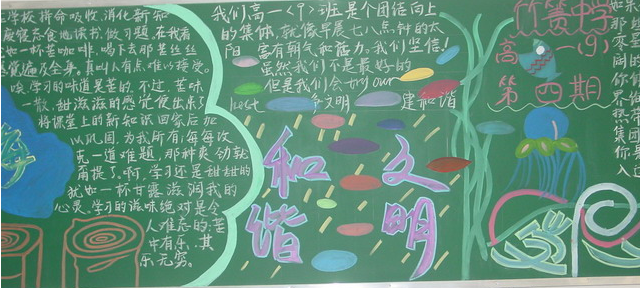 学校拼命吸收,消化新知
废寝忘食地读书,做习题,在我看
如一杯苦咖啡,喝下去那苦丝丝
遍及全身。真叫人有点难以接受。
唉,学习的味道是苦的,不过,苦味
一散,甜滋滋的感觉便出来了
将课堂上的新知识回家后加
以巩固,为我所有,每每攻
克一道难题,那种爽劲就
甭提了。啊,学习还是甜甜的
犹如一杯甘露滋润我的
心灵,学习的滋味绝对是令
人难忘的:苦
中有乐,其
乐无穷。
我们高一〈9〉班是个团结向上
的集体,就像早晨七八点钟的太
阳,富有朝气和活力。我们坚信!
虽然我们不是最好的
但是我们会try our
best 争文明 建和谐
和谐
文明
竹箦中学
高一(9)
第四期